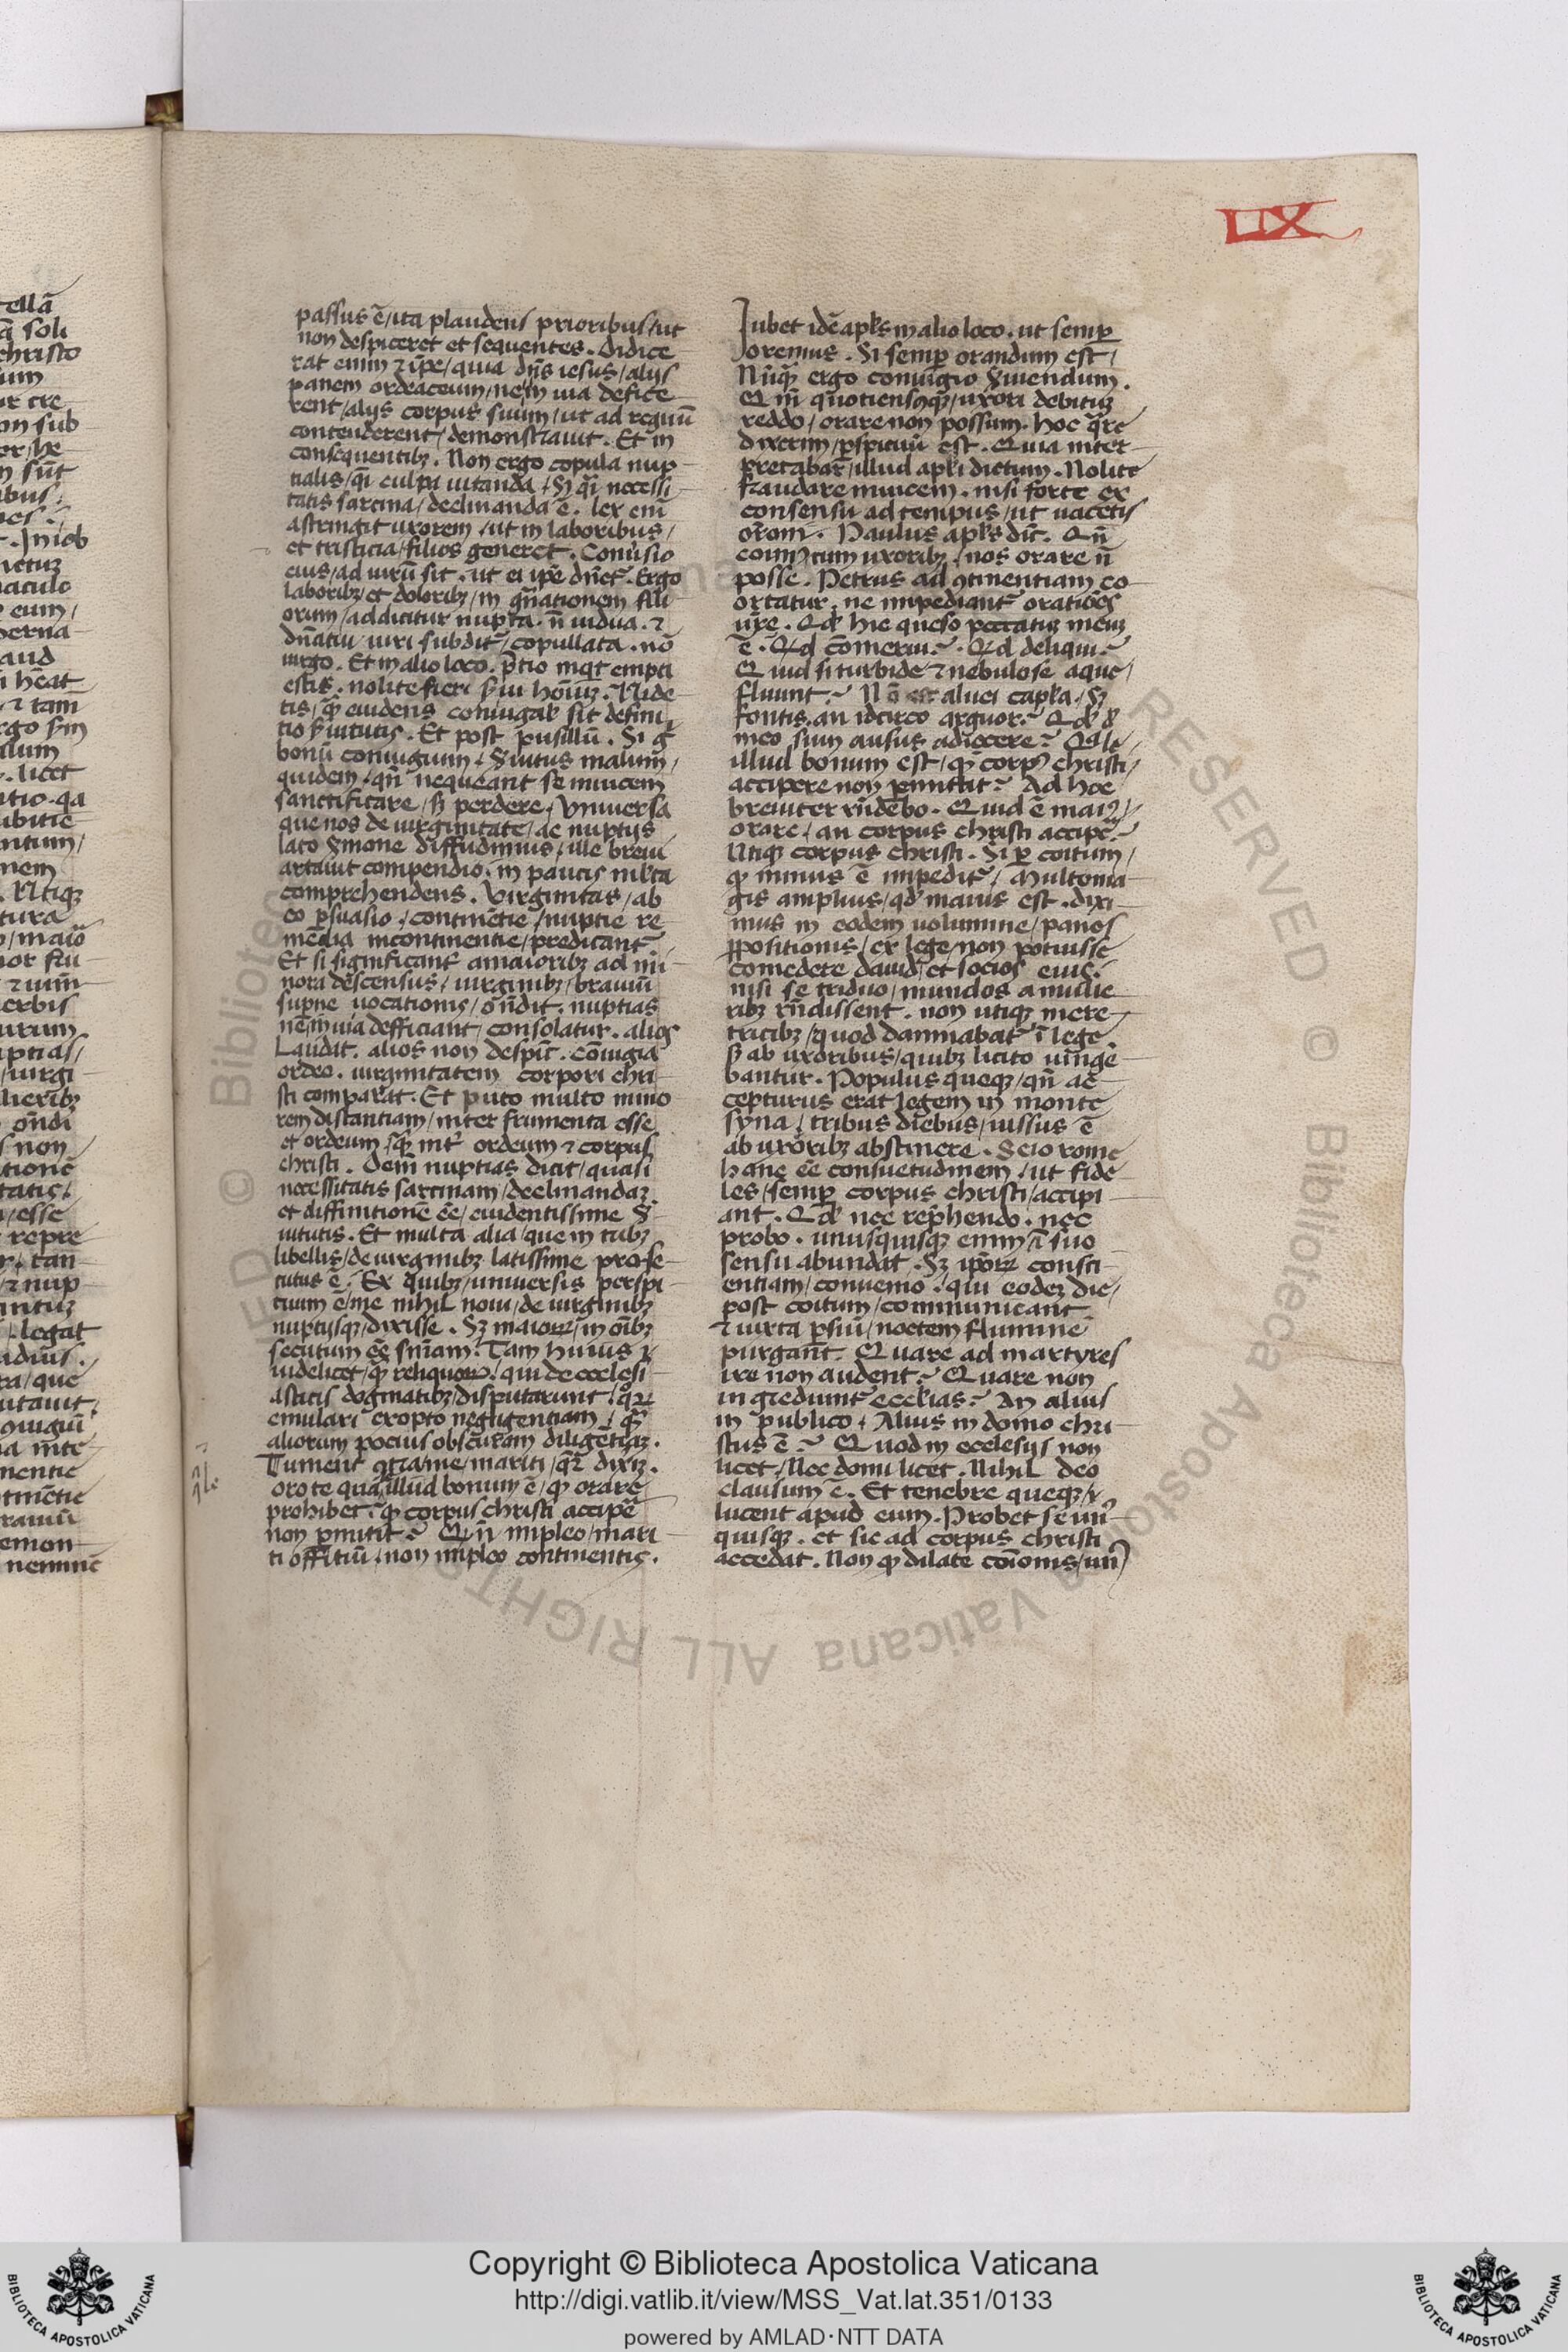 LIX
passus ē/ita plaudens prioribus/ut
non despiceret et sequentes. Didice
rat enim ⁊ ip̄e/quia dn̄s iesus/alijs
panem ordeaceum/ne in uia defice
rent/alijs corpus suum/ut ad regnū
contenderent/demonstrauit. Et in
consequentibꝫ. Non ergo copula nup
tialis/q̄i culpa uitanda/Sꝫ q̄i necessi
tatis sarcina/declinanda ē. lex enī
astringit uxorem/ut in laboribus/
et tristicia/filios generet. Conūsio
eius/ad uirū sit/ut ei ip̄e dn̄et᷑. Ergo
laboribꝫ/et doloribꝫ/in gn̄ationem fili
orum/addicitur nupta. n̄ uidua. ⁊
dn̄atui uiri subdit᷑/copullata. nō
uirgo. Et in alio loco. p̄tio inqͥt empti
estis. nolite fieri s̄ui hoīuꝫ. Uide
tis/ꝙ euidens coniugal' sit defini
tio s̄uitutis. Et post pusillū. Si gͦ
bonū coniugium/S̄uitus malum/
quidem/qn̄ nequeant se inuicem
sanctificare/sꝫ perdere/Vniuersa
que nos de uirginitate/ac nuptijs
lato s̄mone diffudimus/ille breui
artauit compendio. in paucis ml'ta
comprehendens. Virginitas/ab
eo p̄suasio/continētie/nuptie re
media incontinentie/predicant᷑
Et si significant᷑ a maioribꝫ ad mi
nora descensus/uirginibꝫ/brauiū
sup̄ne uocationis/on̄dit. nuptias
ne in uia defficiant/consolatur. alios
Laudat. alios non despic̄. cōiugia
ordeo. uirginitatem corpori chri
sti comparat. Et puto multo mino
rem distantiam/inter frumenta esse
et ordeum/qͣꝫ int᷑ ordeum ⁊ corpus
christi. Deīn nuptias dicit/quasi
necessitatis sarcinam/declinandaꝫ
et diffinitionē eē/euidentissime s̄
uitutis. Et multa alia/que in tribꝫ
libellis/de uirginibꝫ latissime prose
cutus ē. Ex quibꝫ/uniuersis perspi
cuum ē/me nihil noui/de uirginibꝫ
nuptijsqꝫ/dixisse. Sꝫ maioꝝ/in oībꝫ
secutum eē sn̄iam. Tam huius ꝫ
uidelicet/qͣꝫ reliquoꝝ. qui de ecclesi
asticis dogmatibꝫ/disputarunt/qͦꝝ
emulari exopto negligentiam/qͣꝫ
aliorum pocius obscuram diligētiaꝫ.
Tument 9tra me/mariti/qͣꝛ dixiꝫ.
oro te quā/illud bonum ē/ꝙ orare
prohibet᷑. ꝙ corpus christi accipe
non ꝑmitit? Qn̄ impleo/mari
ti offitiū/non impleo continentis.
Iubet idē apl's in alio loco. ut semꝑ
oremus. Si semꝑ orandum est/
Nūqͣꝫ ergo coniugio s̄uiendum.
Qm̄ quotienscūqꝫ/uxori debituꝫ
reddo/orare non possum. hoc qͣre
dixerim/ꝑspicuū est. Quia inter
pretabar/illud apl'i dictum. Nolite
fraudare inuicem. nisi forte ex
consensu ad tempus/ut uacetis
oroni. Paulus apl's dic̄. Qn̄
coim9/cum uxoribꝫ/nos orare n̄
posse. Petrus ad 9tinentiam co
ortatur. ne impediant᷑ orationes
ur̄e. Qd' hic queso peccatuꝫ meuꝫ
ē. Qd cōmerui? Qd deliqui?
Quid si turbide ⁊ nebulose aque/
fluunt? Nō est aluei cap̄la/Sꝫ
fontis. an idcirco arguor? Qd' d'
meo sum ausus adiicere? Qͣle
illud bonum est/ꝙ corpꝰ christi/
accipere non ꝑmittit? Ad hoc
breuiter rn̄debo. Quid ē maiꝰ/
orare/an corpus christi accipe?
Utiqꝫ corpus christi. Si ꝑ coitum/
ꝙ minus ē impedit᷑/Multo ma
gis amplius/qd' maius est. dixi
mus in eodem uolumine/panes
ꝓpositionis/ex lege/non potuisse
comedere dauid/et socios eius/
nisi se triduo/mundos a mulie
ribꝫ rn̄dissent. non utiqꝫ mere
tricibꝫ/quod damnabat᷑ ī lege.
sꝫ ab uxoribus/quibꝫ licito iunge
bantur. Populus queqꝫ/qn̄ ac
cepturus erat legem in monte
syna/tribus diebus/iussus ē
ab uxoribꝫ abstinere. Scio rome
hanc eē consuetudinem/ut fide
les/semꝑ corpus christi/accipi
ant. Qd' nec rep̄hendo. nec
probo. unusquisqꝫ enim ī suo
sensu abundat. Sꝫ ip̄oꝝ consci
entiam/conuenio/qui eodeꝫ die/
post coitum/communicant
⁊ iuxta ꝑsiū/noctem flumine
purgant. Quare ad martyres
ire non audent? Quare non
ingrediunt᷑ eccl'ias? An alius
in publico/Alius in domo chri
stus ē? Quod in ecclesijs non
licet/Nec domi licet. Nihil deo
clausum ē. Et tenebre queqꝫ/
lucent apud eum. Probet se un9
quisqꝫ. et sic ad corpus christi
accedat. Non ꝙ dilate cōionis/un9
Copyright © Biblioteca Apostolica Vaticana
http://digi.vatlib.it/view/MSS_Vat.lat.351/0133
powered by AMLAD·NTT DATA